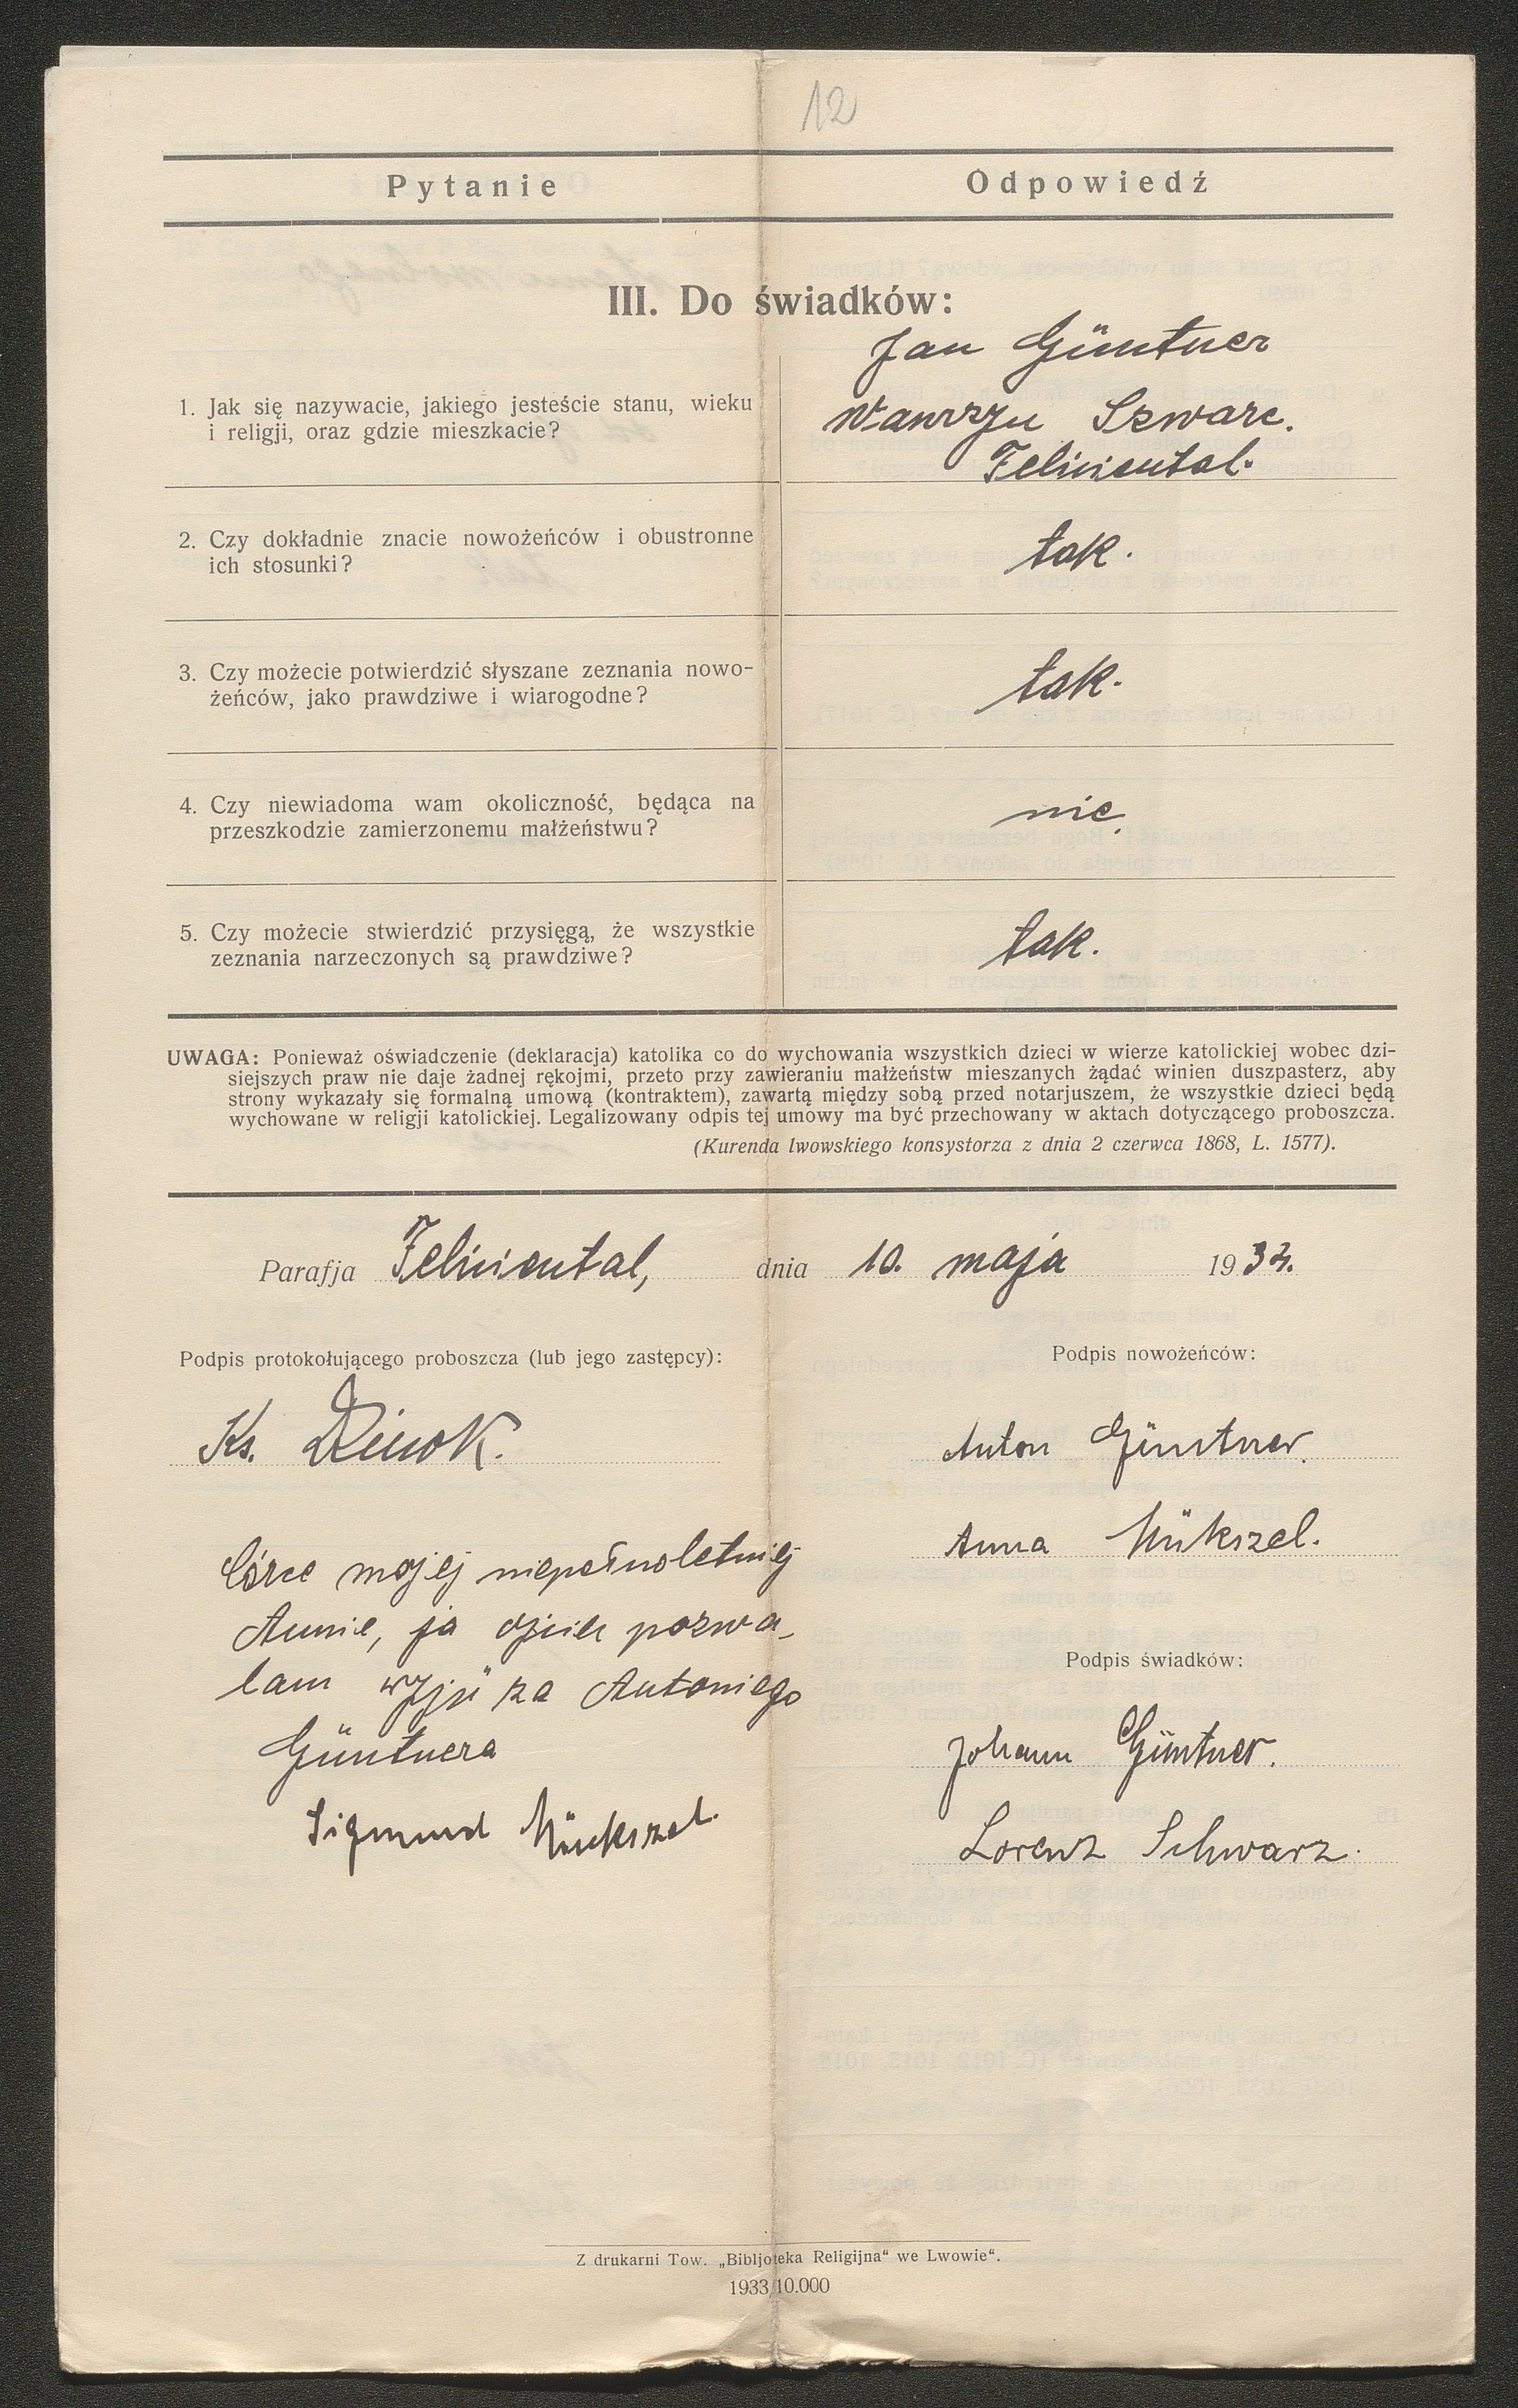 12
Pytanie
Odpowiedź
III. Do świadków:
1. Jak się nazywacie, jakiego jesteście stanu, wieku
i religji, oraz gdzie mieszkacie?
Jan Güntner
Wawrzyn Szwarc.
Feliciental.
2. Czy dokładnie znacie nowożeńców i obustronne
ich stosunki?
tak.
3. Czy możecie potwierdzić słyszane zeznania nowo-
żeńców, jako prawdziwe i wiarogodne?
tak.
4. Czy niewiadoma wam okoliczność, będąca na
przeszkodzie zamierzonemu małżeństwu?
nie.
5. Czy możecie stwierdzić przysięgą, że wszystkie
zeznania narzeczonych są prawdziwe?
tak.
UWAGA: Ponieważ oświadczenie (deklaracja) katolika co do wychowania wszystkich dzieci w wierze katolickiej wobec dzi-
siejszych praw nie daje żadnej rękojmi, przeto przy zawieraniu małżeństw mieszanych żądać winien duszpasterz, aby
strony wykazały się formalną umową (kontraktem), zawartą między sobą przed notarjuszem, że wszystkie dzieci będą
wychowane w religji katolickiej. Legalizowany odpis tej umowy ma być przechowany w aktach dotyczącego proboszcza.
(Kurenda lwowskiego konsystorza z dnia 2 czerwca 1868, L. 1577).
Parafja Feliciental, dnia 10. maja 1934.
Podpis protokołującego proboszcza (lub jego zastępcy):
Ks.
Córce mojej niepełnoletniej
Annie, ja ojciec pozwa-
lam wyjść za Antoniego
Güntnera
Sigmund Mükszel.
Podpis nowożeńców:
Anton Güntner.
Anna Mükszel.
Podpis świadków:
Johann Güntner.
Lorenz Schwarz.
Z drukarni Tow. „Bibljoteka Religijna“ we Lwowie“.
1933/10.000